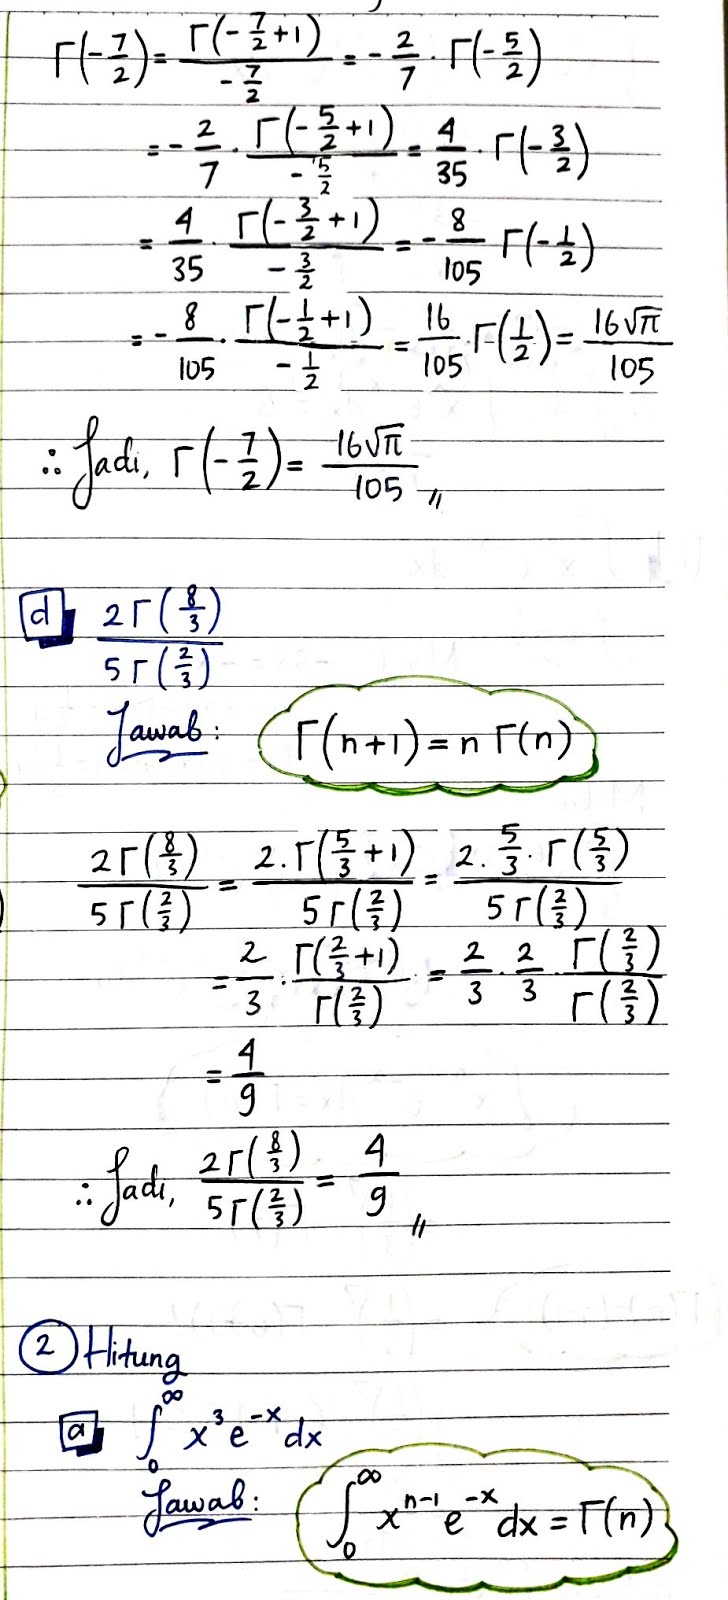 Γ(-7/2) = Γ(-7/2+1)/(-7/2) = -2/7 · Γ(-5/2)
= -2/7 · Γ(-5/2+1)/(-5/2) = 4/35 · Γ(-3/2)
= 4/35 · Γ(-3/2+1)/(-3/2) = -8/105 Γ(-1/2)
= -8/105 · Γ(-1/2+1)/(-1/2) = 16/105 Γ(1/2) = 16√π/105
∴ Jadi, Γ(-7/2) = 16√π/105 //
d 2Γ(8/3)/5Γ(2/3)
Jawab :
Γ(n+1) = n Γ(n)
2Γ(8/3)/5Γ(2/3) = 2.Γ(5/3+1)/5Γ(2/3) = 2. 5/3 · Γ(5/3)/5Γ(2/3)
= 2/3 · Γ(2/3+1)/Γ(2/3) = 2/3 · 2/3 · Γ(2/3)/Γ(2/3)
= 4/9
∴ Jadi, 2Γ(8/3)/5Γ(2/3) = 4/9 //
2 Hitung
a ∫₀^∞ x³ e⁻ˣ dx
Jawab :
∫₀^∞ xⁿ⁻¹ e⁻ˣ dx = Γ(n)